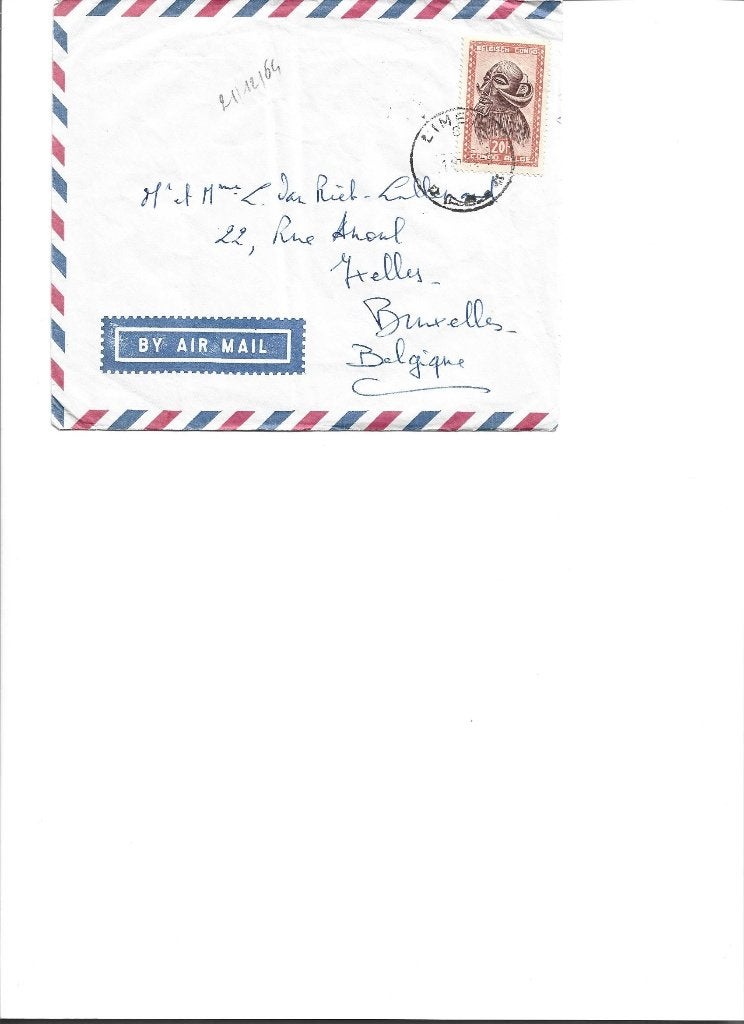 21/12/64
BELGISCH CONGO
20F
CONGO BELGE
LIME
Mr et Mme L. Van Riet-
22, Rue Anoul
Ixelles-
Bruxelles-
Belgique
BY AIR MAIL